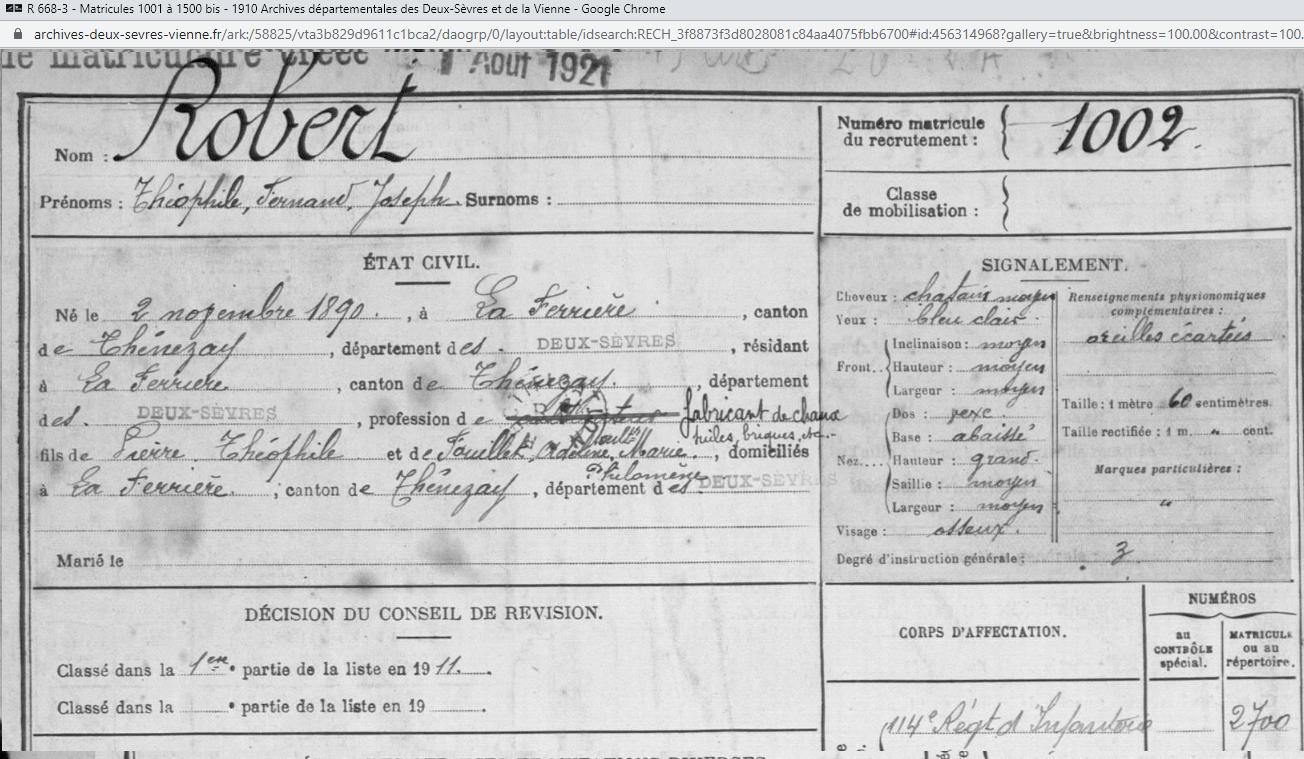 R 668-3 - Matricules 1001 à 1500 bis - 1910 Archives départementales des Deux-Sèvres et de la Vienne - Google Chrome
archives-deux-sevres-vienne.fr/ark:/58825/vta3b829d9611c1bca2/daogrp/0/layout:table/idsearch:RECH_3f8873f3d8028081c84aa4075fbb6700#id:456314968?gallery=true&brightness=100.00&contrast=100.
le matriculaire créée 1 Août 1921
Nom : Robert
Prénoms : Théophile, Fernand, Joseph. Surnoms :
Numéro matricule du recrutement : 1002.
Classe de mobilisation :
ÉTAT CIVIL.
Né le 2 novembre 1890., à La Ferrière, canton
de Thénezay, département des. DEUX-SÈVRES, résidant
à La Ferrière, canton de Thénezay., département
des. DEUX-SÈVRES, profession de fabricant de chaux
tuiles, briques, etc.
fils de Pierre Théophile et de Fouillet, Adeline, Marie, domiciliés
Philomène
à La Ferrière., canton de Thénezay, département des. DEUX-SÈVRES
Marié le
SIGNALEMENT.
Cheveux : chatain moyen
Yeux : bleu clair.
Front.. Inclinaison : moyen
Hauteur : moyen
Largeur : moyen
Nez.... Dos : vexe.
Base : abaissé
Hauteur : grand.
Saillie : moyen
Largeur : moyen
Visage : osseux.
Renseignements physionomiques complémentaires :
oreilles écartées
Taille : 1 mètre 60 centimètres.
Taille rectifiée : 1 m. " cent.
Marques particulières :
"
Degré d'instruction générale : 3
DÉCISION DU CONSEIL DE REVISION.
Classé dans la 1ère partie de la liste en 1911.
Classé dans la • partie de la liste en 19 .
CORPS D'AFFECTATION.
NUMÉROS
au CONTRÔLE spécial.
MATRICULE ou au répertoire.
114e Régt d'Infanterie 2700